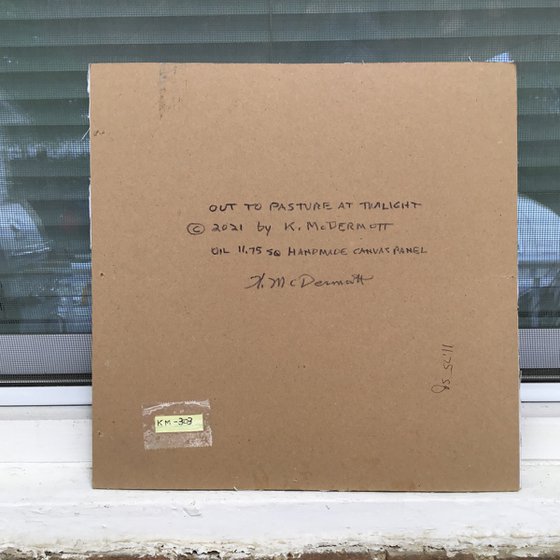 OUT TO PASTURE AT TWILIGHT
© 2021 by K. McDERMOTT
OIL 11.75 SQ HANDMADE CANVAS PANEL
K. McDermott
11.75 SQ
KM-303